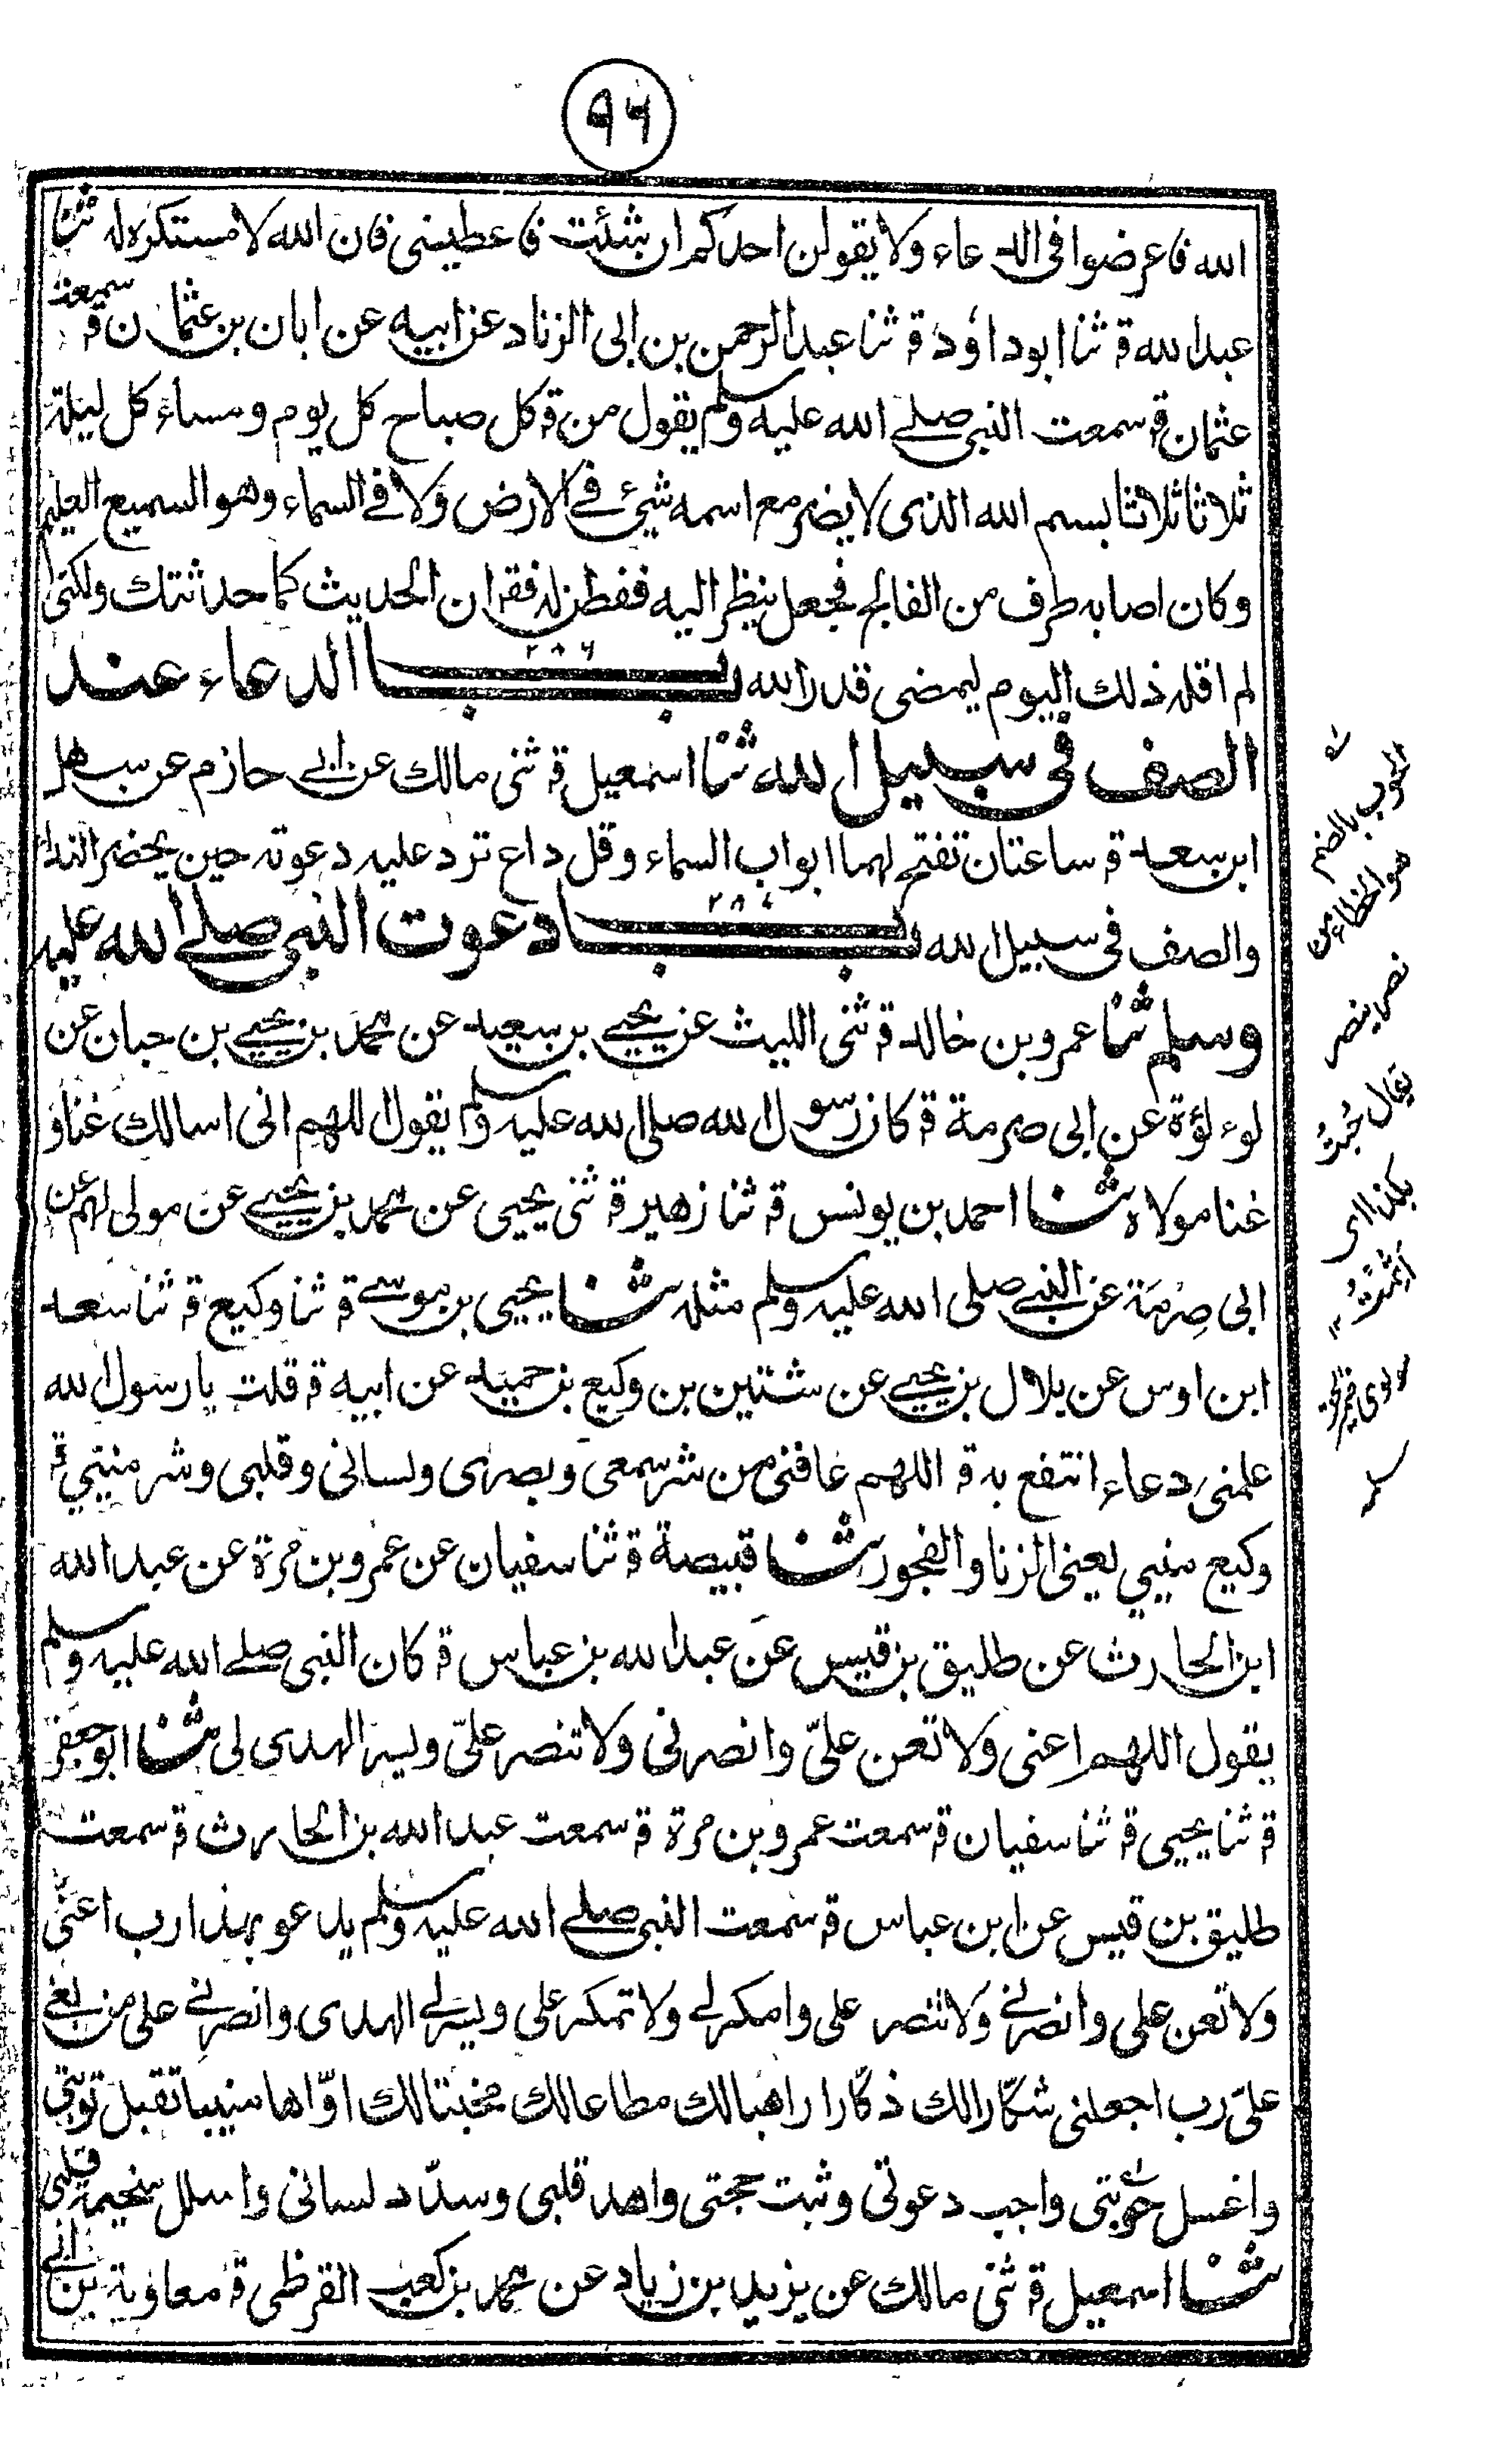 ٩٦
الله فاعرضوا فى الدعاء ولا يقولن احدكم ان شئت فاعطينى فان الله لا مستكره له ثنا
عبد الله ق ثنا ابو داؤد ق ثنا عبد الرحمن بن ابى الزناد عن ابيه عن ابان بن عثمان ق سمعت
عثمان ق سمعت النبى صلے الله عليه وسلم يقول من ق كل صباح كل يوم ومساء كل ليلة
ثلاثا ثلاثا بسم الله الذى لا يضر مع اسمه شئ فے الارض ولا فے السماء وهو السميع العليم
وكان اصابه طرف من الفالج فجعل ينظر اليه ففطن له فقه ان الحديث كما حدثتك ولكنى
لم اقله ذلك اليوم ليمضى قدر الله بــاب ٢٨٦ الدعاء عند
الصف فى سبيل الله ثنا اسمعيل ق ثنى مالك عن ابے حازم عن سهل
ابن سعد ق ساعتان تفتح لهما ابواب السماء وقل داع ترد عليه دعوته حين يحضر النداء
والصف فى سبيل الله بــاب ٢٨٧ دعوت النبى صلے الله عليه
وسلم ثنا عمرو بن خالد ق ثنى الليث عن يحيے بن سعيد عن محمد بن يحيے بن حبان عن
لوءلؤة عن ابى صرمة ق كان رسول الله صلى الله عليه وسلم يقول اللهم انى اسالك غناى و
غنا مولاه ثنا احمد بن يونس ق ثنا زهير ق ثنى يحيى عن محمد بن يحيے عن مولى لهم عن
ابى صِرْمَة عن النبے صلى الله عليه وسلم مثله ثنا يحيى بن موسے ق ثنا وكيع ق ثنا سعد
ابن اوس عن بلال بن يحيے عن شتين بن وكيع بن حميد عن ابيه ق قلت يا رسول الله
علمنى دعاء انتفع به ق اللهم عافنى من شر سمعى وبصرى ولسانى وقلبى وشر منيتي ق
وكيع منيي يعنى الزنا والفجور ثنا قبيصة ق ثنا سفيان عن عمرو بن مرة عن عبد الله
ابن الحارث عن طليق بن قيس عن عبد الله بن عباس ق كان النبى صلے الله عليه وسلم
يقول اللهم اعنى ولا تعن علىّ وانصرنى ولا تنصر علىّ ويسر الهدى لى ثنا ابو حفص
ق ثنا يحيى ق ثنا سفيان ق سمعت عمرو بن مرة ق سمعت عبد الله بن الحارث ق سمعت
طليق بن قيس عن ابن عباس ق سمعت النبى صلے الله عليه وسلم يدعو بهذا رب اعنّى
ولا تعن على وانصرنے ولا تنصر على وامكر لے ولا تمكر على ويسر لے الهدى وانصرنے على من بغے
علىّ رب اجعلنى شكّارا لك ذكّارا راهبا لك مطاعا لك مخبتا لك اوّاها منيبا تقبل توبتى
واغسل حوبتى واجب دعوتى وثبت حجتى واهد قلبى وسدّد لسانى واسلل سخيمة قلبى
ثنا اسمعيل ق ثنى مالك عن يزيد بن زياد عن محمد بن كعب القرظى ق معاوية بن ابے
الحوب بالضم
هو الخطاء من
نصر ينصر
يقال حُبتُ
بكذا اى
اَثمتُ ۱۲
مولوى
سلمه